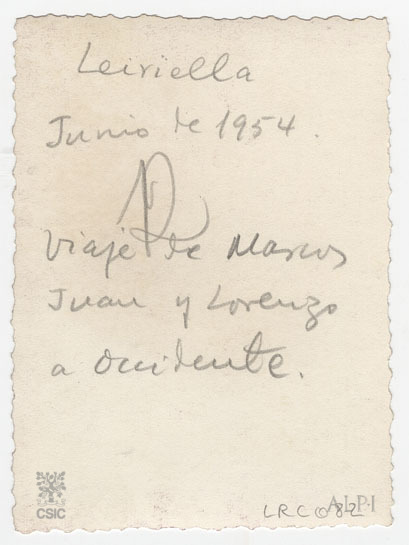 Leiriella
Junio de 1954.
Viaje de Marcos
Juan y Lorenzo
a Occidente.
CSIC
LRC 082
ALPI